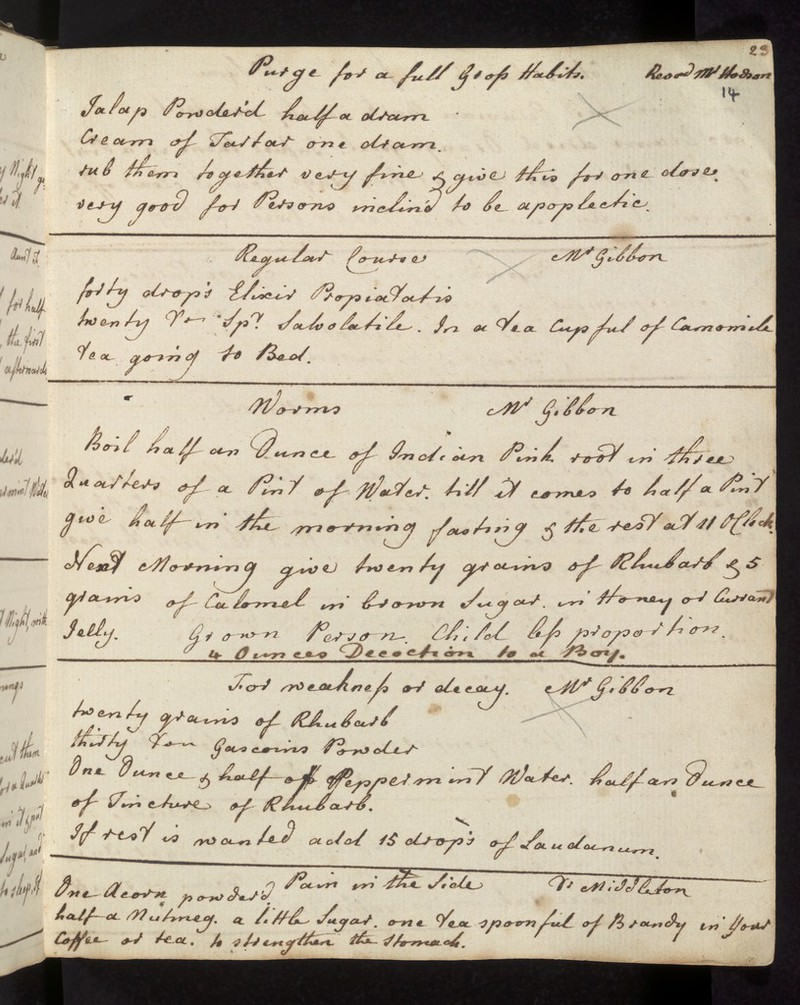 23
Purge for a full Gross Habit. Recd Mr Hodson
14
Jalap Powder'd half a dram
Cream of Tartar one dram.
rub them together very fine & give this for one dose.
very good for Persons inclin'd to be apoplectic.
Regular Course Mr Gibbon
forty drop's Elixir Propiatatis
twenty Do Spt. Salvolatile. In a Tea Cup ful of Camomile
Tea going to Bed.
Worms Mr Gibbon
Boil half an Ounce of Indian Pink root in three
Quarters of a Pint of Water. till it comes to half a Pint
give half in the morning fasting & the rest at 11 O Clock.
Next Morning give twenty grains of Rhubarb & 5
grains of Calomel in brown Sugar. in Honey or Currant
Jelly. Grown Person. Child less proportion.
4 Ounces Decoction to a Boy.
For weakness or decay. Mr Gibbon
twenty grains of Rhubarb
thirty Do Gascoins Powder
One Ounce & half of Peppermint Water. half an Ounce
of Tincture of Rhubarb.
If rest is wanted add 15 drop's of Laudanum.
Pain in the Side Dr Middleton
One Acorn powder'd
half a Nutmeg. a little Sugar. one Tea spoonful of Brandy in your
Coffee or tea. to strengthen the Stomach.